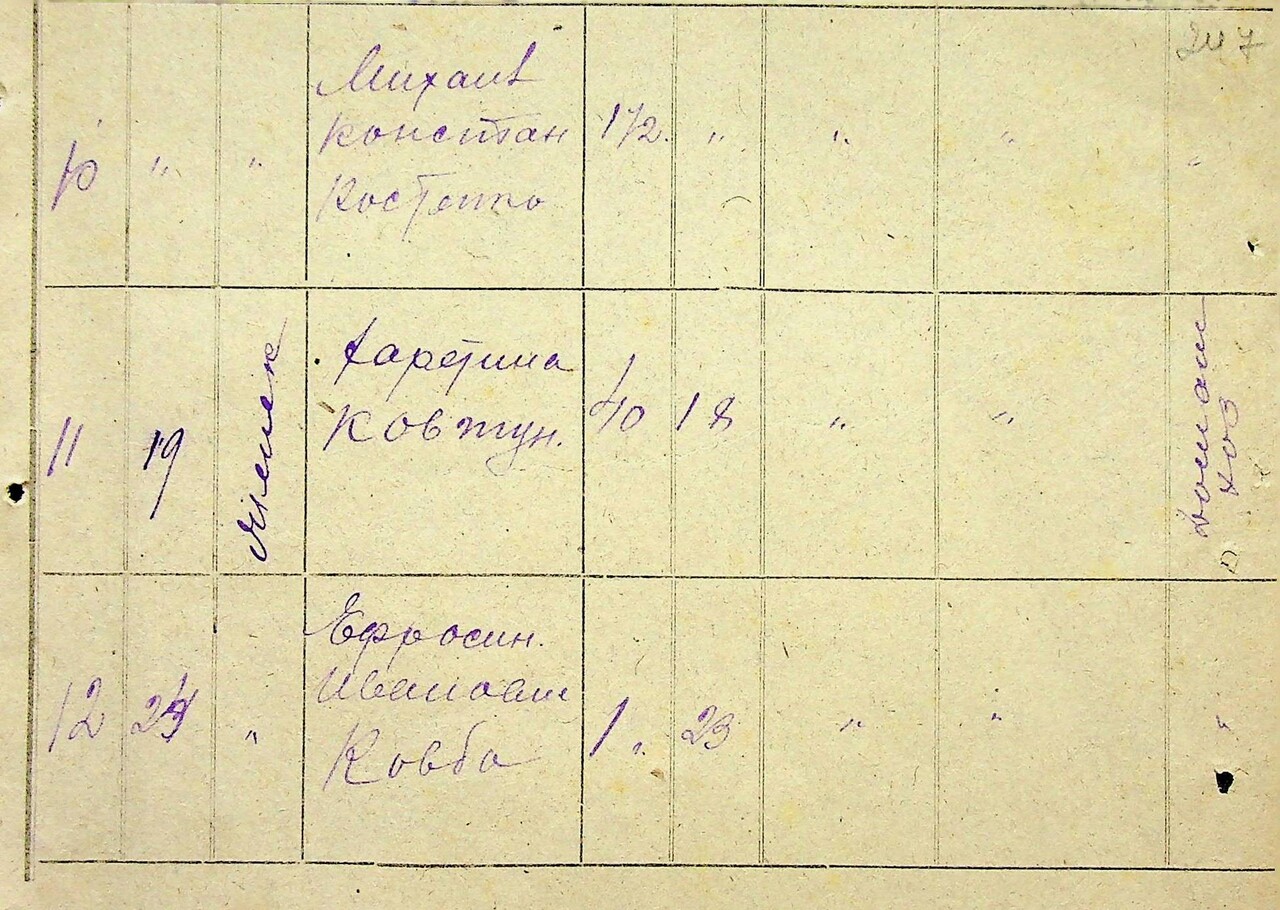 247
10 " " Михаил
Констан
Костенко 1/2. " " " "
11 19 Харетина
Ковтун. 40 18 " " Домаш
хоз
12 24 " Ефросин.
Ивановн
Ковба 1 " 23 " " "